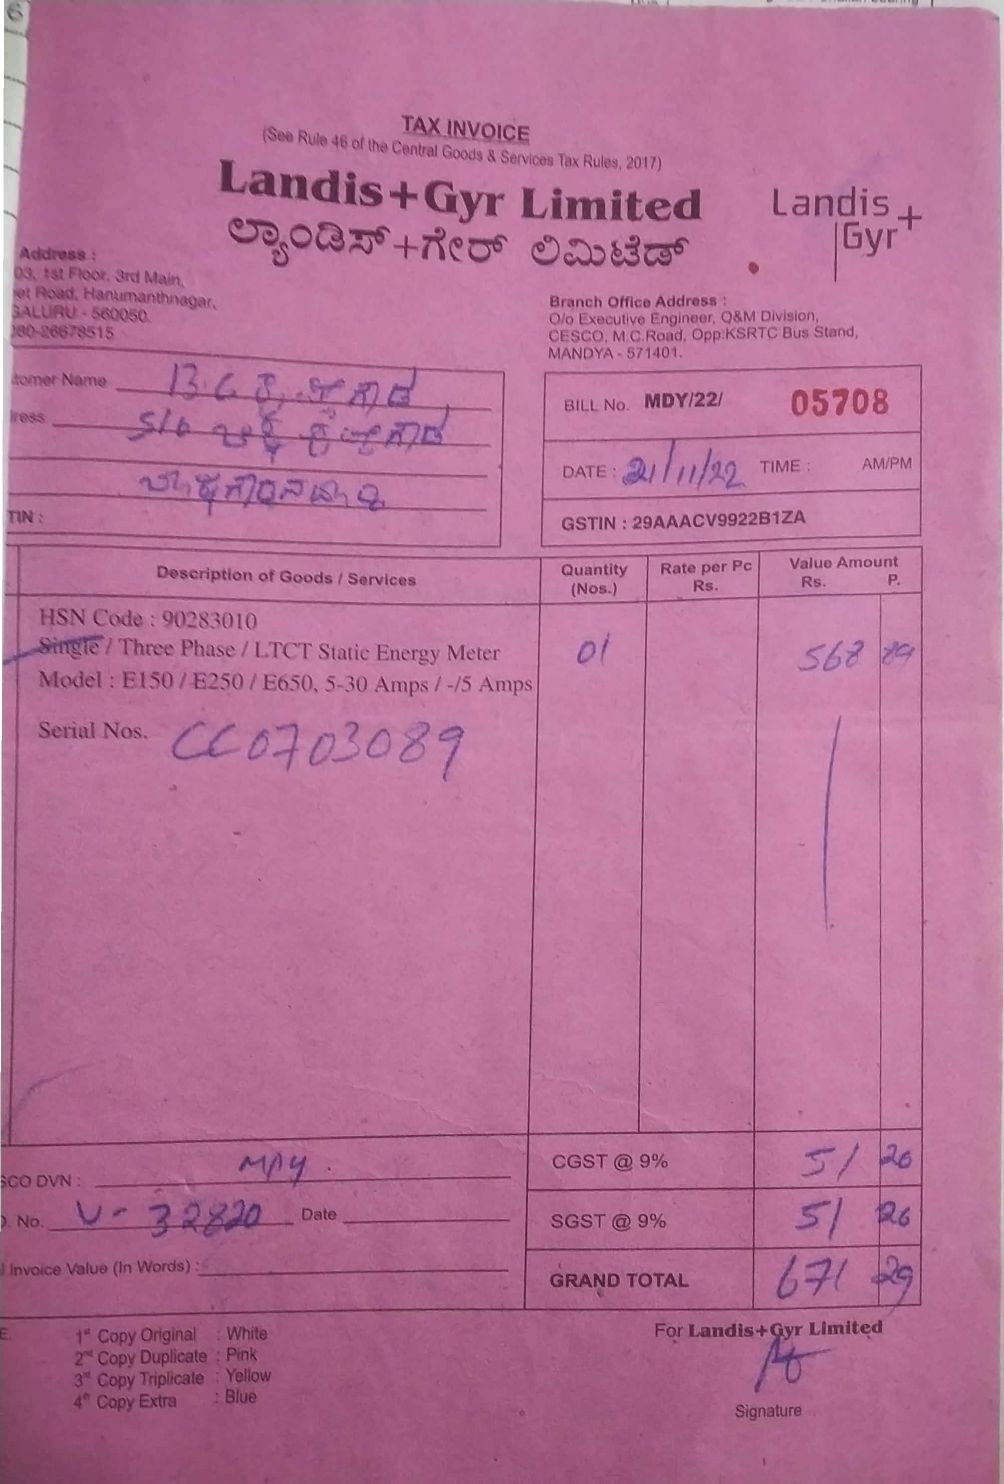 TAX INVOICE
(See Rule 46 of the Central Goods & Services Tax Rules, 2017)
Landis+Gyr Limited
ಲ್ಯಾಂಡಿಸ್+ಗೇರ್ ಲಿಮಿಟೆಡ್
Landis+
Gyr
Address :
03, 1st Floor, 3rd Main,
et Road, Hanumanthnagar,
GALURU - 560050.
080-26678515
Branch Office Address :
O/o Executive Engineer, Q&M Division,
CESCO, M.C.Road, Opp:KSRTC Bus Stand,
MANDYA - 571401.
tomer Name
ress
TIN :
BILL No. MDY/22/ 05708
DATE : 21/11/22 TIME : AM/PM
GSTIN : 29AAACV9922B1ZA
Description of Goods / Services Quantity (Nos.) Rate per Pc Rs. Value Amount Rs. P.
HSN Code : 90283010
Single / Three Phase / LTCT Static Energy Meter 01 568 89
Model : E150 / E250 / E650, 5-30 Amps / -/5 Amps
Serial Nos. CC0703089
SCO DVN :
CGST @ 9% 51 20
. No. V- 32820 Date
SGST @ 9% 51 20
Invoice Value (In Words) :
GRAND TOTAL 671 29
E.
1st Copy Original : White
2nd Copy Duplicate : Pink
3rd Copy Triplicate : Yellow
4th Copy Extra : Blue
For Landis+Gyr Limited
Signature